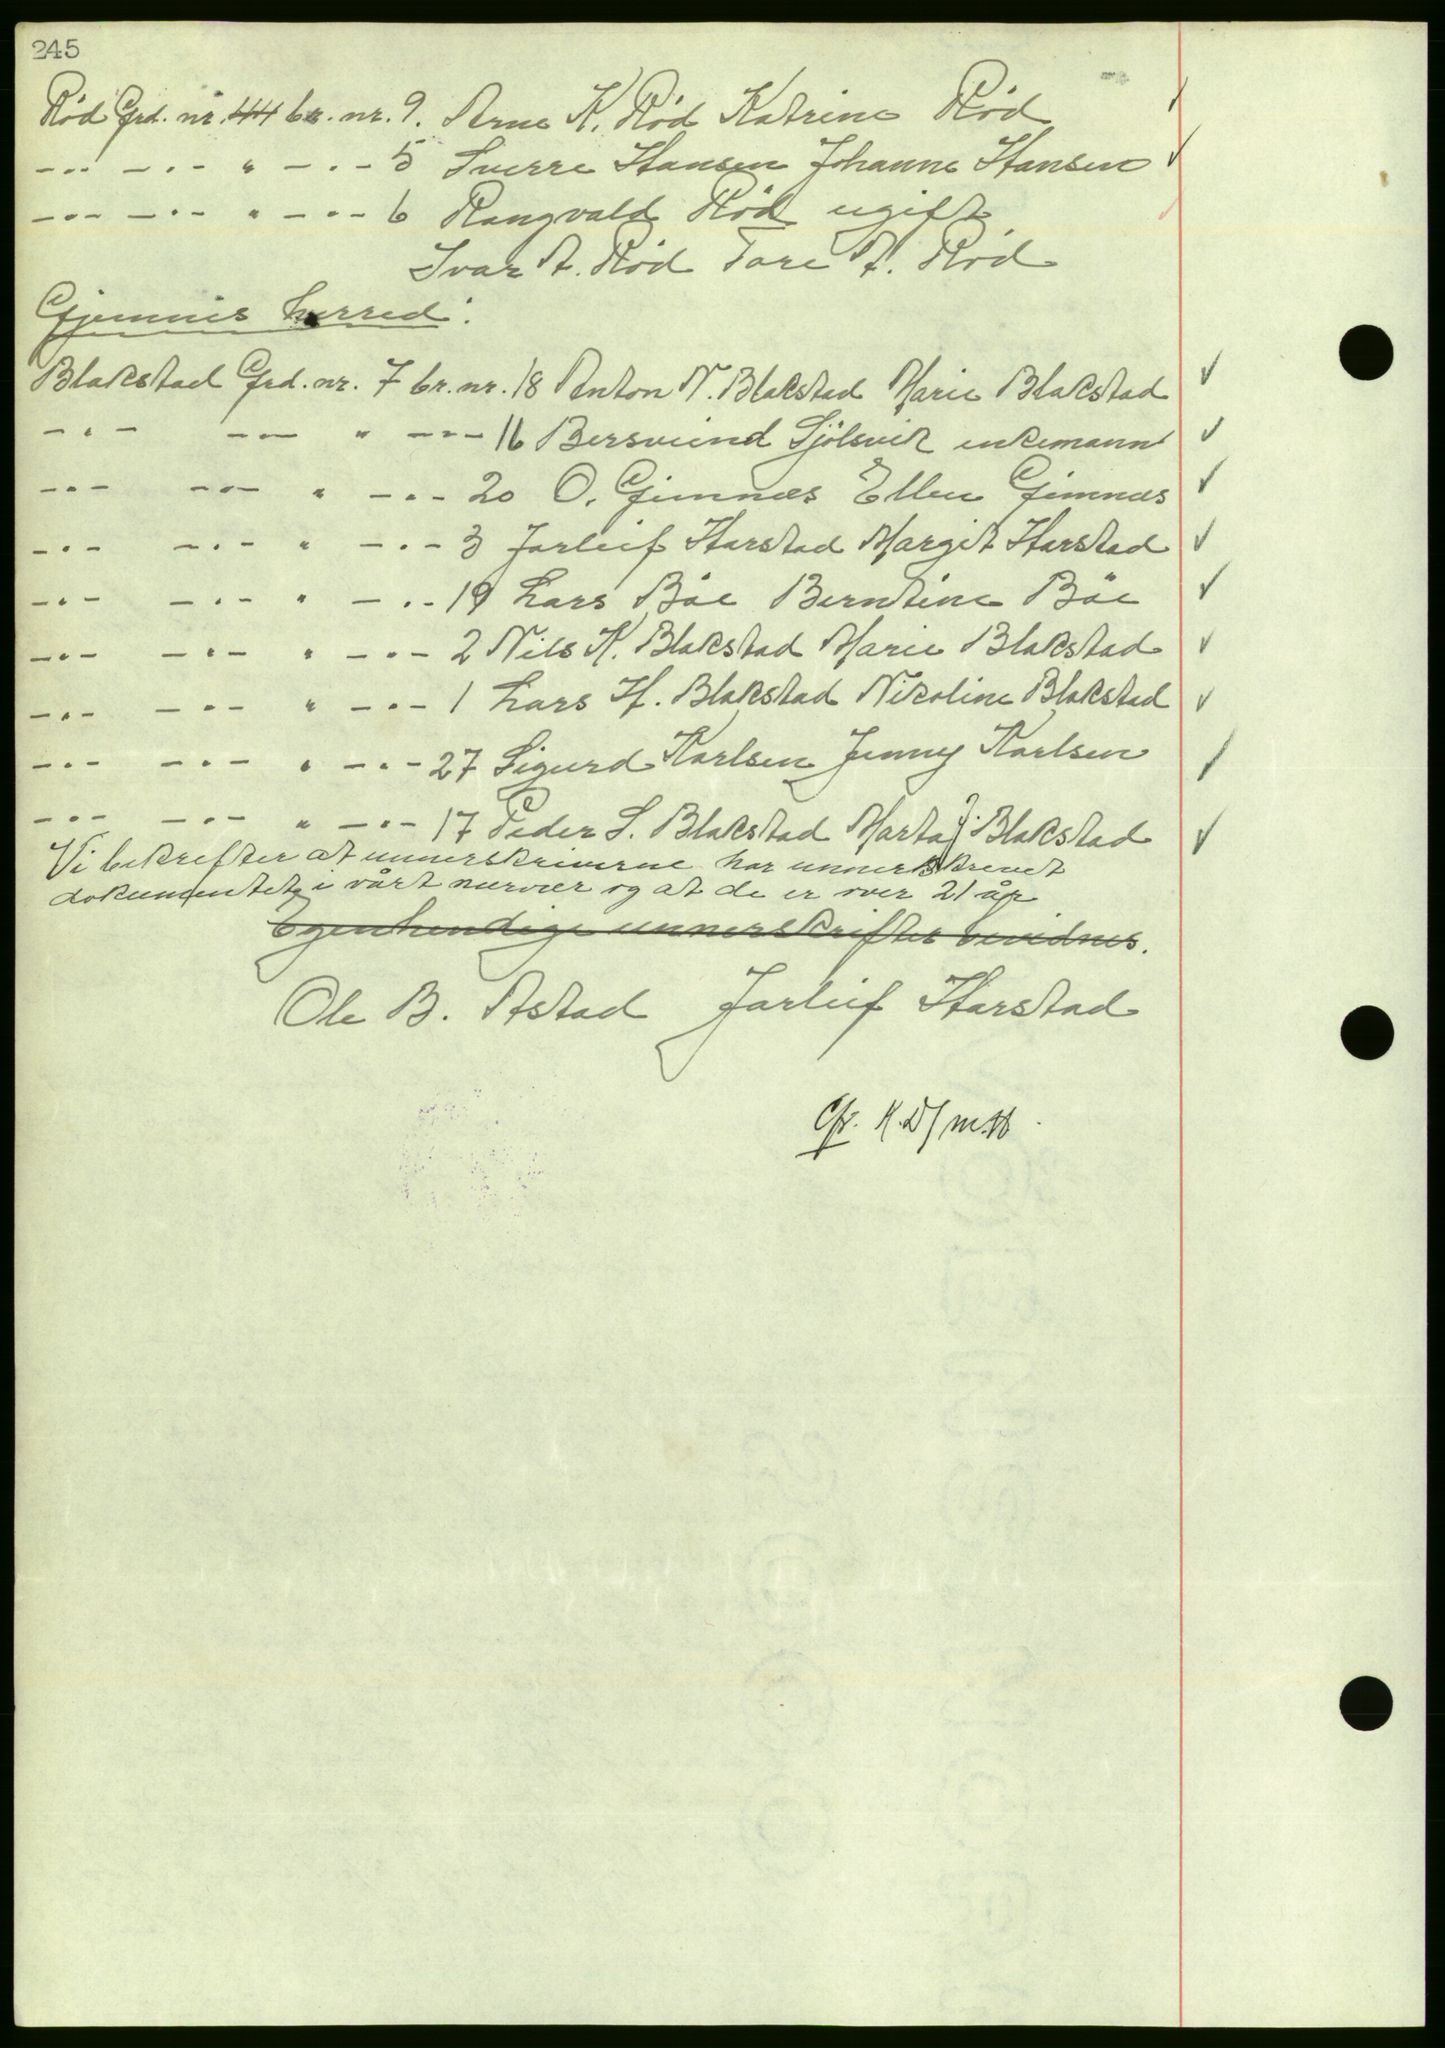 245
Rød Grd. nr. 44 br. nr. 9. Arne K. Rød Katrine Rød
-"- -"- " -"- 5 Sverre Hansen Johanne Hansen
-"- -"- " -"- 6 Rangvald Rød ugift
Ivar A. Rød Tore A. Rød
Gjemnes herred:
Blakstad Grd. nr. 7 br. nr. 18 Anton N. Blakstad Marie Blakstad
-"- -"- " -"- 16 Bersvend Sjölsvik enkemann
-"- -"- " -"- 20 O. Gimnæs Ellen Gimnæs
-"- -"- " -"- 3 Jarleif Harstad Margit Harstad
-"- -"- " -"- 19 Lars Böe Berntine Böe
-"- -"- " -"- 2 Nils K. Blakstad Marie Blakstad
-"- -"- " -"- 1 Lars H. Blakstad Nikoline Blakstad
-"- -"- " -"- 27 Sigurd Karlsen Jenny Karlsen
-"- -"- " -"- 17 Peder S. Blakstad Marta J. Blakstad
Vi bekrefter at unnerskriverne har unnerskrevet
dokumentet i vårt nærvær og at de er over 21 år
Egenhendige unnerskrifter bevidnes.
Ole B. Astad Jarleif Harstad